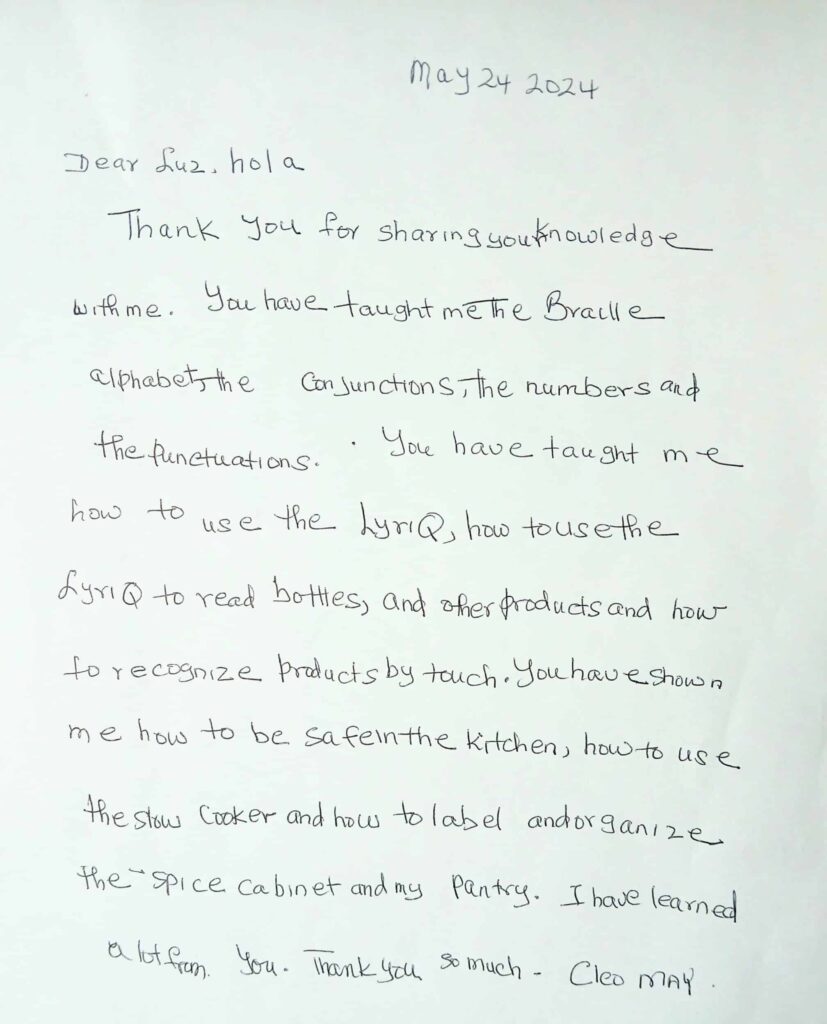 May 24 2024
Dear Luz, hola
Thank you for sharing your knowledge
with me. You have taught me The Braille
alphabet, the Conjunctions, the numbers and
the punctuations. You have taught me
how to use the LyriQ, how to use the
LyriQ to read bottles, and other products and how
to recognize products by touch. You have shown
me how to be safe in the kitchen, how to use
the slow Cooker and how to label and organize
the spice cabinet and my pantry. I have learned
a lot from you. Thank you so much - Cleo MAY.